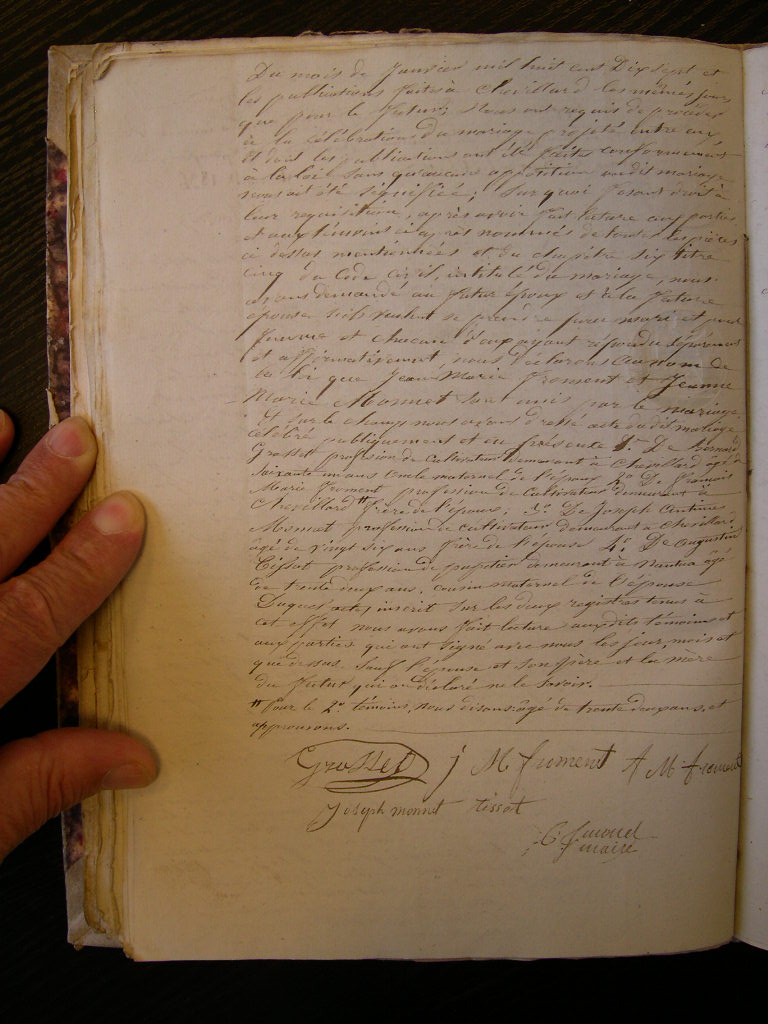 Du mois de Janvier mil huit cent Dix sept et
les publications faites à Chevillard les mêmes jours
que pour le futur; Nous ont requis de procéder
à la célébration du mariage projeté entre eux
et dont les publications ont été faites conformément
à la loi sans qu'aucune opposition au dit mariage
nous ait été signifiée; Sur quoi faisant droit à
leur requisition, après avoir fait lecture aux parties
et aux témoins ci après nommés de toutes les pièces
ci dessus mentionnées et du chapitre six titre
cinq du Code Civil, intitulé du mariage, nous
avons demandé au futur époux et à la future
épouse s'ils veulent se prendre pour mari et pour
femme et chacun d'eux ayant répondu séparément
et affirmativement, nous déclarons au nom de
la loi que Jean Marie Froment et Jeanne
Marie Monnet sont unis par le mariage,
Et sur le champ nous avons dressé acte du dit mariage
célébré publiquement et en présence 1° De Bernard
Grosset profession de cultivateur demeurant à Chevillard agé de
Soixante un ans oncle maternel de l'époux 2° De François
Marie Froment profession de cultivateur demeurant à
Chevillard # frère de l'époux; 3° De Joseph
Monnet profession de cultivateur demeurant à Chevillard
âgé de vingt six ans frère de l'épouse 4° De Augustin
Tissot profession de demeurant à Nantua âgé
de trente deux ans, cousin maternel de l'épouse
Duquel acte, inscrit sur les deux registres tenus à
cet effet nous avons fait lecture aux dits témoins et
aux parties qui ont signé avec nous les jour, mois et
que dessus sauf l'épouse et son père et la mère
du futur qui ont déclaré ne le savoir.
# Pour le 2° témoin, nous disons âgé de trente deux ans, et
approuvons.
Grosset j M froment A M froment
Joseph monnet tissot
maire